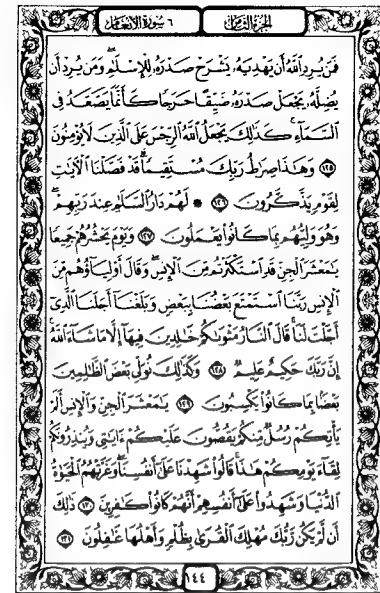 ٦ سُورَةُ الأَنْعَام الجزء الثامن
فَمَن يُرِدِ اللَّهُ أَن يَهْدِيَهُ يَشْرَحْ صَدْرَهُ لِلْإِسْلَامِ وَمَن يُرِدْ أَن
يُضِلَّهُ يَجْعَلْ صَدْرَهُ ضَيِّقًا حَرَجًا كَأَنَّمَا يَصَّعَّدُ فِي
السَّمَاءِ كَذَلِكَ يَجْعَلُ اللَّهُ الرِّجْسَ عَلَى الَّذِينَ لَا يُؤْمِنُونَ
١٢٥ وَهَذَا صِرَاطُ رَبِّكَ مُسْتَقِيمًا قَدْ فَصَّلْنَا الْآيَاتِ
لِقَوْمٍ يَذَّكَّرُونَ ١٢٦ * لَهُمْ دَارُ السَّلَامِ عِندَ رَبِّهِمْ
وَهُوَ وَلِيُّهُم بِمَا كَانُوا يَعْمَلُونَ ١٢٧ وَيَوْمَ يَحْشُرُهُمْ جَمِيعًا
يَا مَعْشَرَ الْجِنِّ قَدِ اسْتَكْثَرْتُم مِّنَ الْإِنسِ وَقَالَ أَوْلِيَاؤُهُم مِّنَ
الْإِنسِ رَبَّنَا اسْتَمْتَعَ بَعْضُنَا بِبَعْضٍ وَبَلَغْنَا أَجَلَنَا الَّذِي
أَجَّلْتَ لَنَا قَالَ النَّارُ مَثْوَاكُمْ خَالِدِينَ فِيهَا إِلَّا مَا شَاءَ اللَّهُ
إِنَّ رَبَّكَ حَكِيمٌ عَلِيمٌ ١٢٨ وَكَذَلِكَ نُوَلِّي بَعْضَ الظَّالِمِينَ
بَعْضًا بِمَا كَانُوا يَكْسِبُونَ ١٢٩ يَا مَعْشَرَ الْجِنِّ وَالْإِنسِ أَلَمْ
يَأْتِكُمْ رُسُلٌ مِّنكُمْ يَقُصُّونَ عَلَيْكُمْ آيَاتِي وَيُنذِرُونَكُمْ
لِقَاءَ يَوْمِكُمْ هَذَا قَالُوا شَهِدْنَا عَلَى أَنفُسِنَا وَغَرَّتْهُمُ الْحَيَاةُ
الدُّنْيَا وَشَهِدُوا عَلَى أَنفُسِهِمْ أَنَّهُمْ كَانُوا كَافِرِينَ ١٣٠ ذَلِكَ
أَن لَّمْ يَكُن رَّبُّكَ مُهْلِكَ الْقُرَى بِظُلْمٍ وَأَهْلُهَا غَافِلُونَ ١٣١
١٤٤